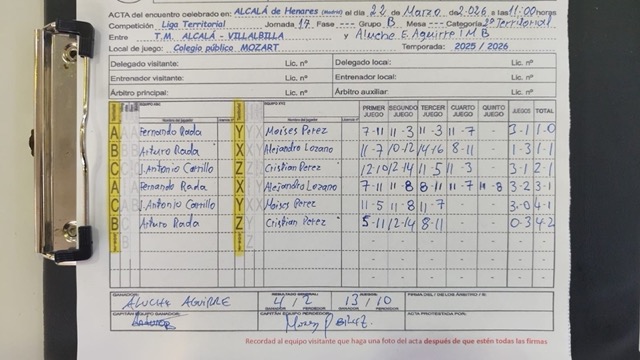 ACTA del encuentro celebrado en: ALCALÁ de HENARES (Madrid) el día 22 de Marzo de 2.026 a las 11:00 horas
Competición Liga Territorial Jornada 17 Fase --- Grupo B Mesa --- Categoría 2ª Territorial
Entre T.M. ALCALÁ - VILLALBILLA y Aluche E. Aguirre T M B
Local de juego: Colegio público MOZART Temporada: 2025 / 2026
Delegado visitante: Lic. nº Delegado local: Lic. nº
Entrenador visitante: Lic. nº Entrenador local: Lic. nº
Árbitro principal: Lic. nº Árbitro auxiliar: Lic. nº
EQUIPO ABC EQUIPO XYZ PRIMER JUEGO SEGUNDO JUEGO TERCER JUEGO CUARTO JUEGO QUINTO JUEGO JUEGOS TOTAL
Nombre del jugador Licencia nº Nombre del jugador Licencia nº
A Fernando Rada Y Moises Perez 7-11 11-3 11-3 11-7 - 3-1 1-0
B Arturo Rada X Alejandro Lozano 11-7 10-12 14-16 8-11 - 1-3 1-1
C J. Antonio Carrillo Z Cristian Perez 12-10 12-14 11-5 11-3 - 3-1 2-1
A Fernando Rada X Alejandro Lozano 7-11 11-8 8-11 11-7 11-8 3-2 3-1
C J. Antonio Carrillo Y Moises Perez 11-5 11-8 11-7 - - 3-0 4-1
B Arturo Rada Z Cristian Perez 5-11 12-14 8-11 - - 0-3 4-2
GANADOR: RESULTADO GENERAL: JUEGOS: FIRMA DEL / DE LOS ÁRBITRO / S:
ALUCHE AGUIRRE 4 / 2 13 / 10
CAPITÁN EQUIPO GANADOR: CAPITÁN EQUIPO PERDEDOR: ACTA PROTESTADA POR:
Recordad al equipo visitante que haga una foto del acta después de que estén todas las firmas